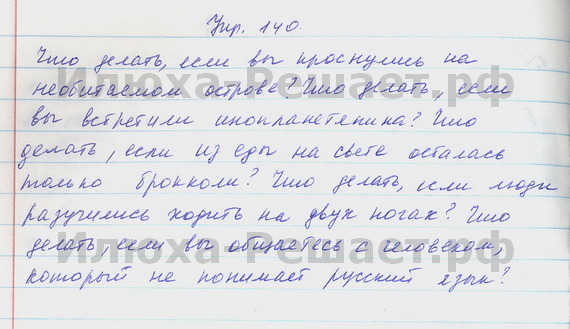 Упр. 140.
Что делать, если вы проснулись на
необитаемом острове? Что делать, если
вы встретили инопланетянина? Что
делать, если из еды на свете осталась
только брокколи? Что делать, если люди
разучились ходить на двух ногах? Что
делать, если вы общаетесь с человеком,
который не понимает русский язык?
Илюха-Решает.рф
Илюха-Решает.рф